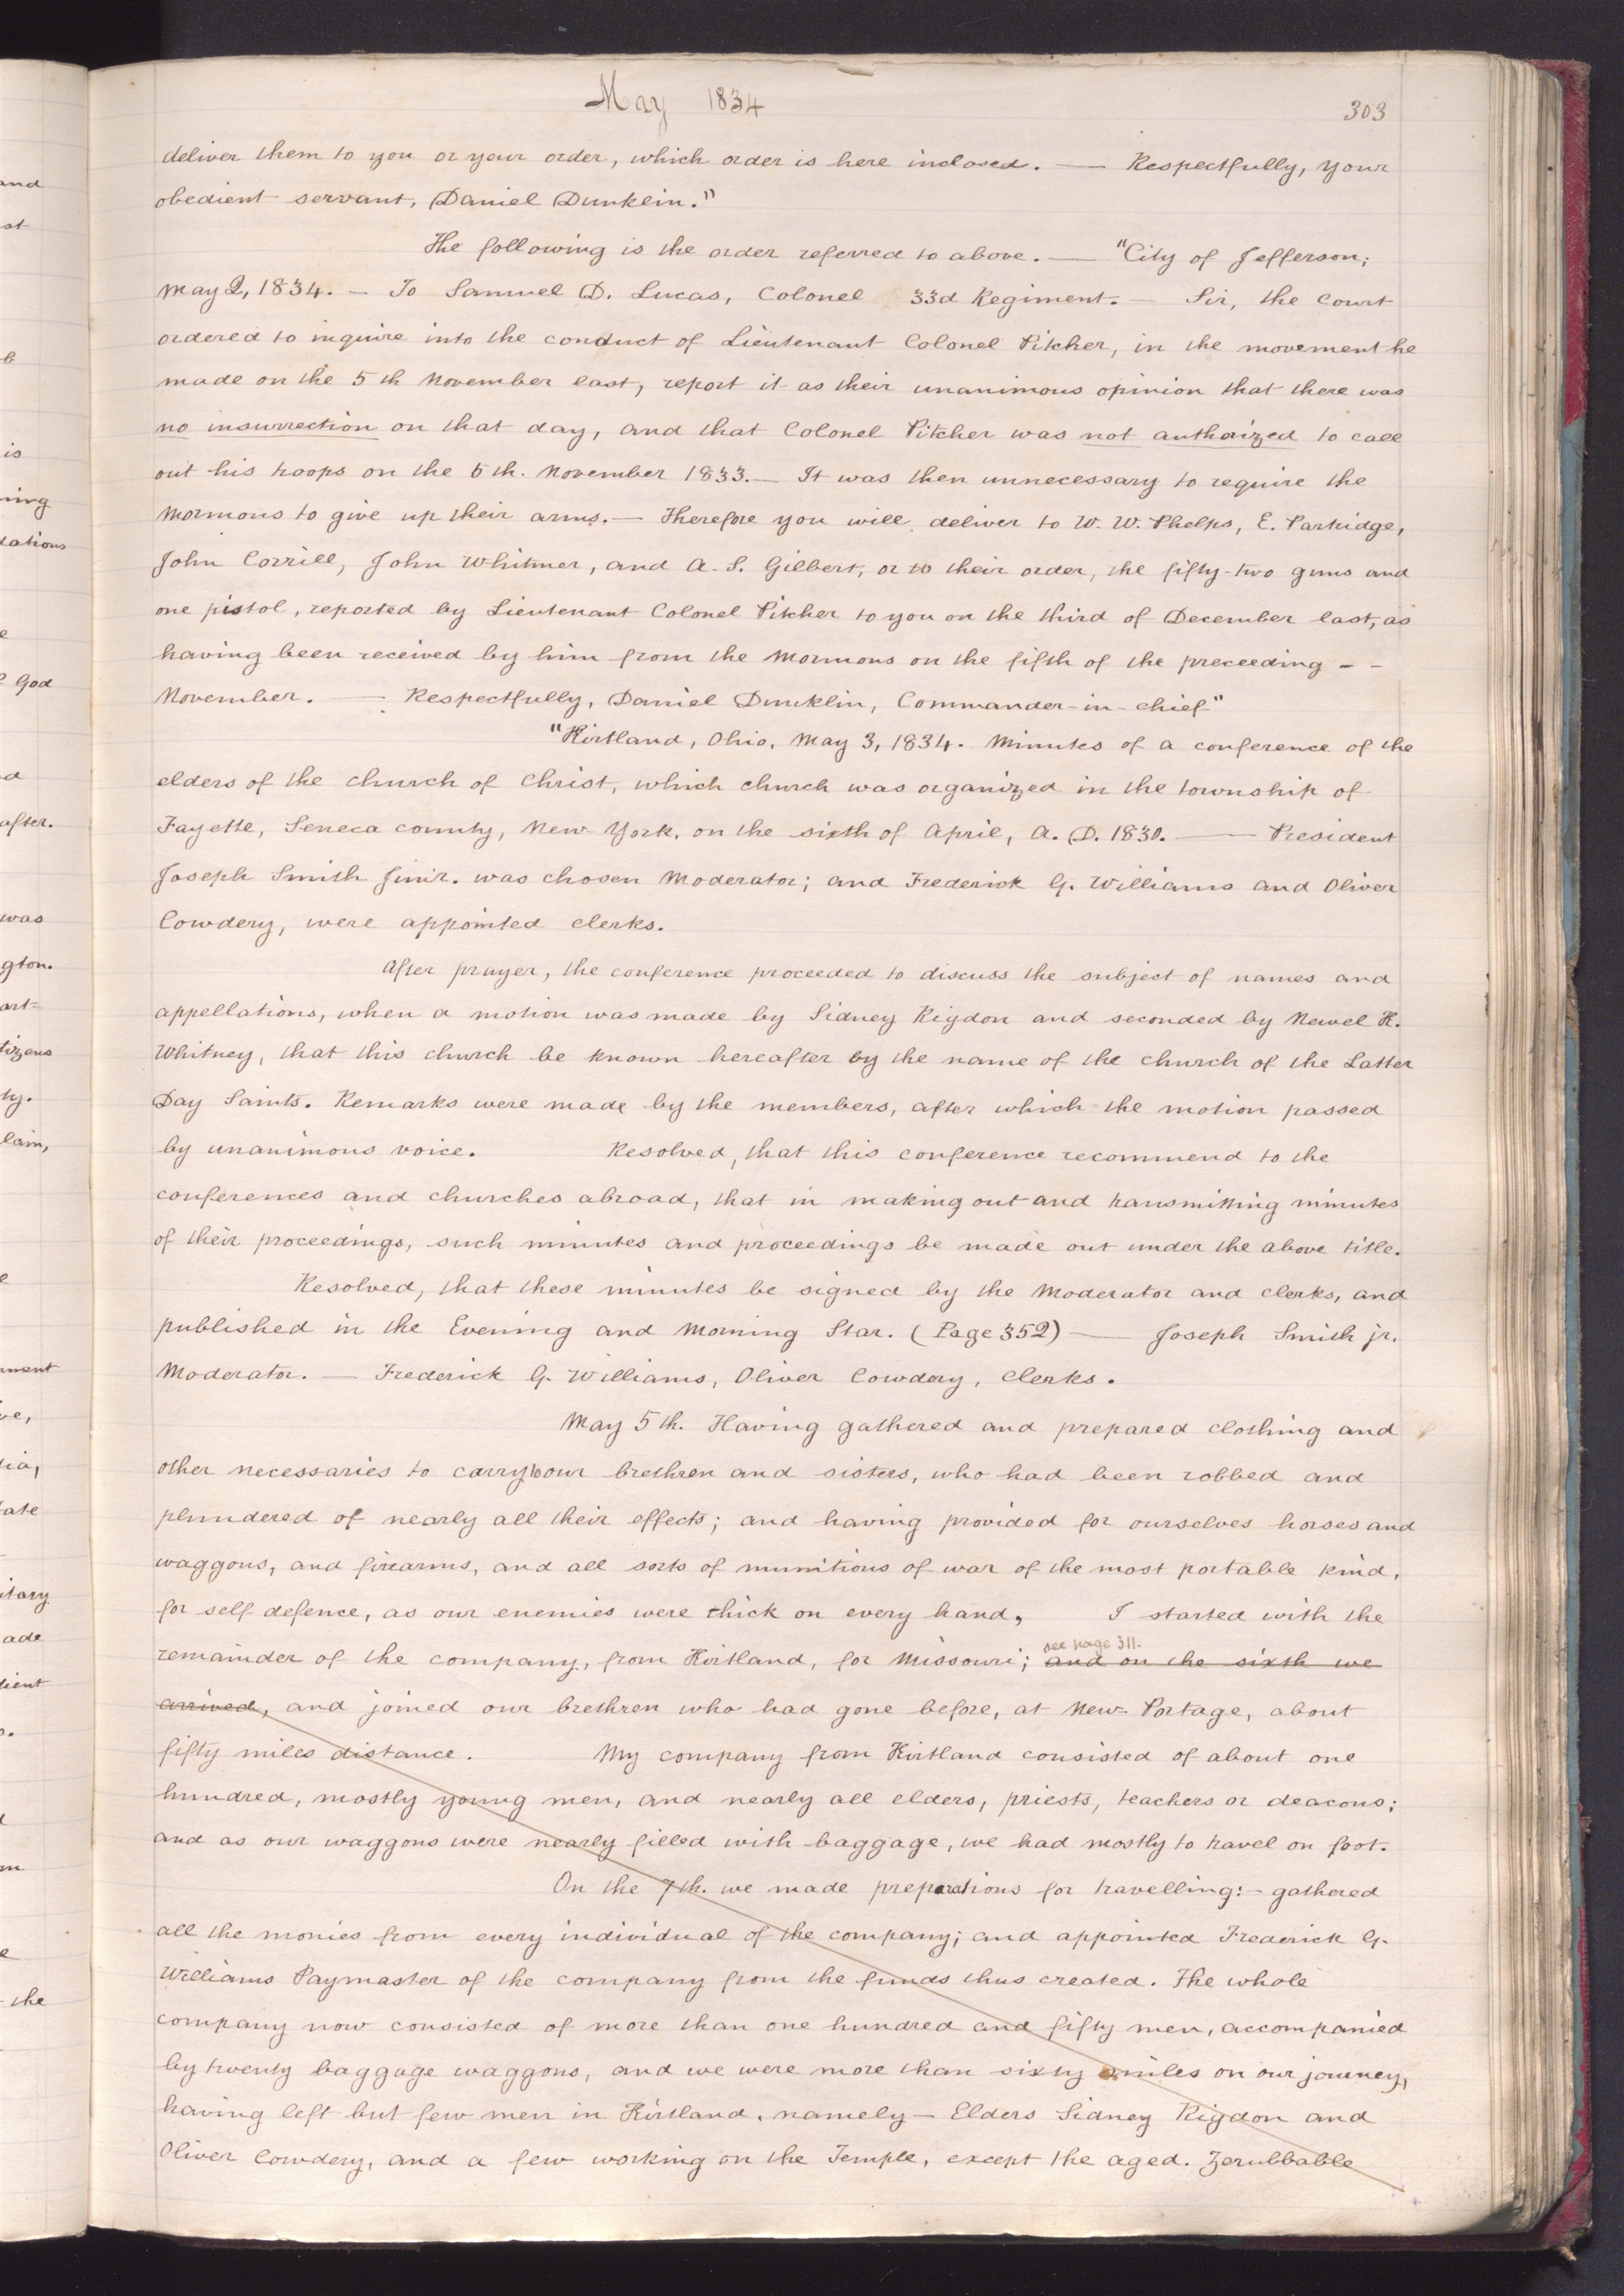 and
st
b
is
ning
dations
e
God
d
after.
was
gton.
art-
tizens
ty.
lain,
e
ment
ve,
lia,
tate
itary
ade
dient
s.
m
e
the
May 1834
303
deliver them to you or your order, which order is here inclosed. — Respectfully, your
obedient servant, Daniel Dunklin."
The following is the order referred to above. — "City of Jefferson;
May 2, 1834. — To Samuel D. Lucas, Colonel 33d Regiment. — Sir, the court
ordered to inquire into the conduct of Lieutenant Colonel Pitcher, in the movement he
made on the 5th November last, report it as their unanimous opinion that there was
no insurrection on that day, and that Colonel Pitcher was not authorized to call
out his troops on the 5th. November 1833. — It was then unnecessary to require the
Mormons to give up their arms. — Therefore you will deliver to W. W. Phelps, E. Partridge,
John Corrill, John Whitmer, and A. S. Gilbert, or to their order, the fifty-two guns and
one pistol, reported by Lieutenant Colonel Pitcher to you on the third of December last, as
having been received by him from the Mormons on the fifth of the preceeding - -
November. — Respectfully, Daniel Dunklin, Commander-in-chief"
"Kirtland, Ohio, May 3, 1834. Minutes of a conference of the
elders of the church of Christ, which church was organized in the township of
Fayette, Seneca county, New York, on the sixth of April, A. D. 1830. — President
Joseph Smith Junr. was chosen Moderator; and Frederick G. Williams and Oliver
Cowdery, were appointed clerks.
After prayer, the conference proceeded to discuss the subject of names and
appellations, when a motion was made by Sidney Rigdon and seconded by Newel K.
Whitney, that this church be known hereafter by the name of the church of the Latter
Day Saints. Remarks were made by the members, after which the motion passed
by unanimous voice. Resolved, that this conference recommend to the
conferences and churches abroad, that in making out and transmitting minutes
of their proceedings, such minutes and proceedings be made out under the above title.
Resolved, that these minutes be signed by the Moderator and clerks, and
published in the Evening and Morning Star. (Page 352) — Joseph Smith jr.
Moderator. — Frederick G. Williams, Oliver Cowdery, Clerks.
May 5th. Having gathered and prepared clothing and
other necessaries to carry to our brethren and sisters, who had been robbed and
plundered of nearly all their effects; and having provided for ourselves horses and
waggons, and firearms, and all sorts of munitions of war of the most portable kind,
for self defence, as our enemies were thick on every hand, I started with the
see page 311.
remainder of the company, from Kirtland, for Missouri; and on the sixth we
arrived, and joined our brethren who had gone before, at New Portage, about
fifty miles distance. My company from Kirtland consisted of about one
hundred, mostly young men, and nearly all elders, priests, teachers or deacons;
and as our waggons were nearly filled with baggage, we had mostly to travel on foot.
On the 7th. we made preparations for travelling: - gathered
all the monies from every individual of the company; and appointed Frederick G.
Williams Paymaster of the company from the funds thus created. The whole
company now consisted of more than one hundred and fifty men, accompanied
by twenty baggage waggons, and we were more than sixty miles on our journey,
having left but few men in Kirtland, namely — Elders Sidney Rigdon and
Oliver Cowdery, and a few working on the Temple, except the aged. Zerubbable